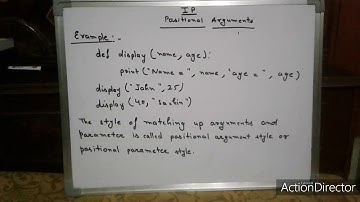 I.P
Positional Arguments
Example:-
def display (name, age):
print ("Name = ", name, "age = ", age)
display ("John", 25)
display (40, "Sachin")
The style of matching up arguments and
parameter is called positional argument style or
positional parameter style.
ActionDirector